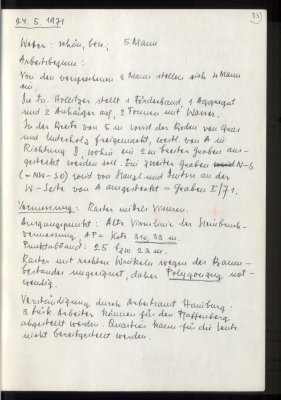 33
24. 5. 1971
Wetter: schön, bew; 5 Mann
Arbeitsbeginn:
Von den versprochenen 8 Mann stellen sich 4 Mann
ein.
Die Fa. Hollitzer stellt 1 Förderband, 1 Aggregat
und 2 Anhänger auf, 2 Tonnen mit Wasser.
In der Breite von 5 m wird der Boden von Gras
und Unterholz freigemacht, westl. von A in
Richtung J, wohin ein 2 m breiter Graben aus-
gesteckt werden soll. Ein zweiter Graben N-S
(-NW-SO) wird von Hanzl und an der
W-Seite von A ausgesteckt = Graben I/71.
Vermessung: Raster mittels Visuren.
Ausgangspunkt: Alte Visurlinie der Steinbruch-
vermessung AP = Kote 310,33 m.
Punktabstand: 25 bzw. 23 m.
Raster mit rechten Winkeln wegen des Baum-
bestandes ungeeignet, daher Polygonzug not-
wendig.
Verständigung durch Arbeitsamt Hainburg:
3 Arbeiter können für den Pfaffenberg
abgestellt werden. Quartier kann für die Leute
nicht bereitgestellt werden.